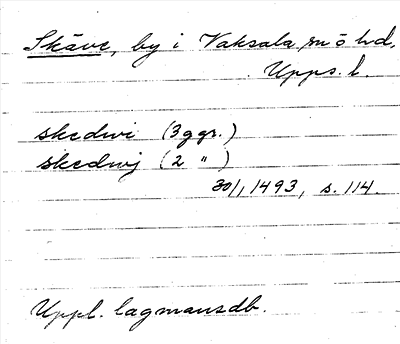 Skäve, by i Vaksala sn o hd,
Upps. l.
skedwi (3 ggr.)
skedwj (2 " )
30/1 1493, s. 114.
Uppl. lagmansdb.